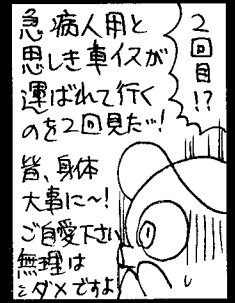 2回目!?
急病人用と
思しき車イスが
運ばれて行く
のを2回見たッ!
皆、身体
大事に〜!
ご自愛下さい
無理は
ダメですよ